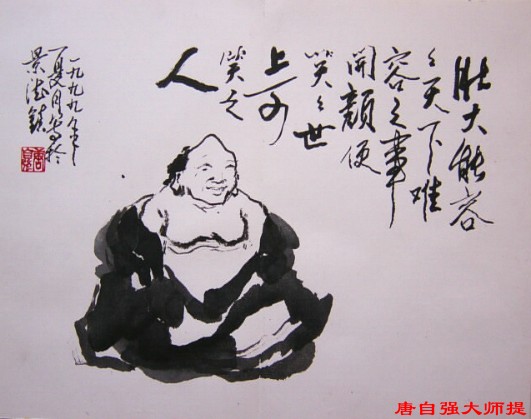 肚大能容
々天下难
容之事
開顔便
笑々世
上可
笑之
人
一九九九年
夏月写於
景德镇
唐自强大师提